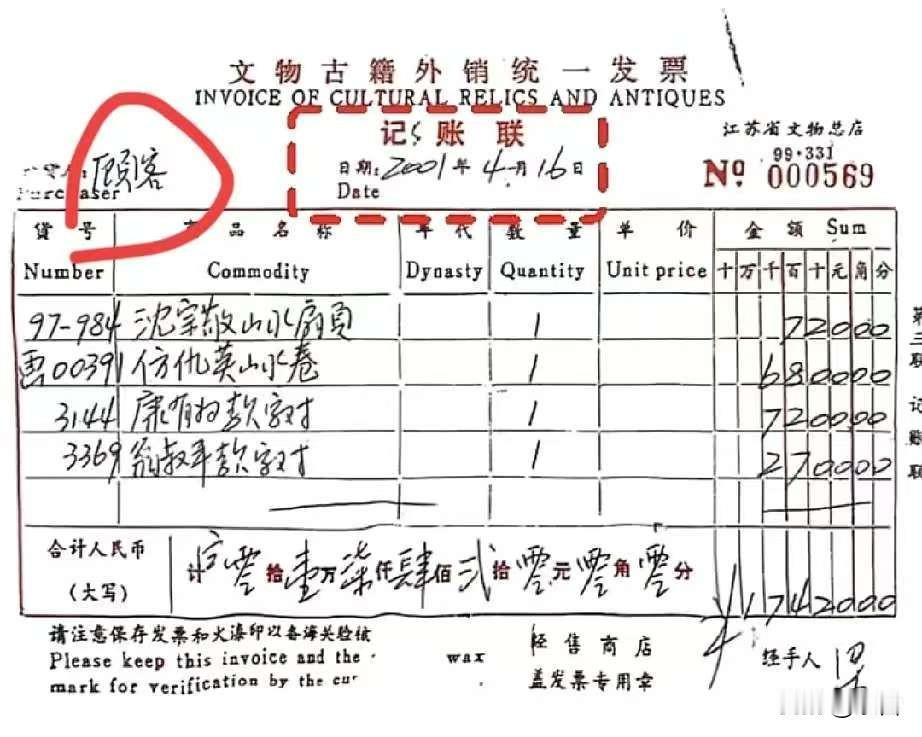 文物古籍外销统一发票
INVOICE OF CULTURAL RELICS AND ANTIQUES
记账联
江苏省文物总店
日期:2001年4月16日
Date
99·331
Nº 000569
顾客
Purchaser
货号 商品名称 年代 数量 单价 金额 Sum
Number Commodity Dynasty Quantity Unit price 十万千百十元角分
97-984 沈宗敬山水扇页 1 72000
画00391 仿仇英山水卷 1 680000
3144 康有为款字对 1 720000
3369 翁叔平款字对 1 270000
第三联 记账联
合计人民币 计零拾壹万柒仟肆佰贰拾零元零角零分
(大写) ¥1742000
请注意保存发票和火漆印以备海关验核
Please keep this invoice and the wax
mark for verification by the
经售商店
盖发票专用章
经手人